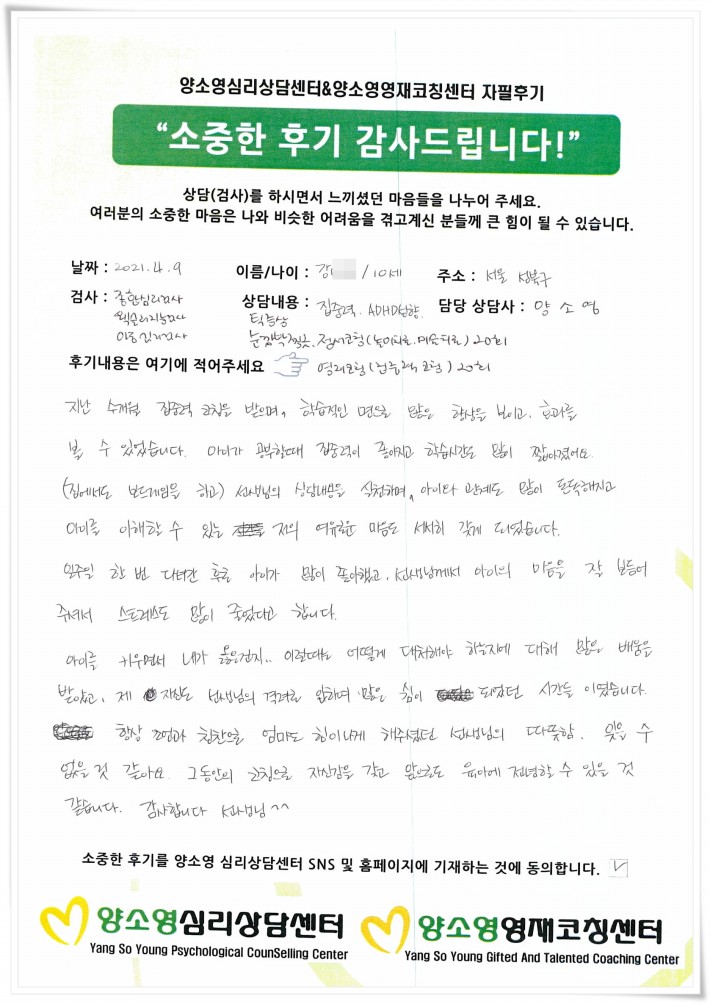 양소영심리상담센터&양소영영재코칭센터 자필후기
“소중한 후기 감사드립니다!”
상담(검사)를 하시면서 느끼셨던 마음들을 나누어 주세요.
여러분의 소중한 마음은 나와 비슷한 어려움을 겪고계신 분들께 큰 힘이 될 수 있습니다.
날짜 : 2021. 4. 9 이름/나이 : 강 /10세 주소 : 서울 성북구
검사 : 종합심리검사 상담내용 : 집중력. ADHD성향. 담당 상담사 : 양소영
웩슬러지능검사 틱증상
눈깜박찡긋. 정서코칭(놀이치료.미술치료) 20회
후기내용은 여기에 적어주세요 영재코칭(집중력코칭) 20회
지난 수개월 집중력 코칭을 받으며, 학습적인 면으로 많은 향상을 보이고, 효과를
볼 수 있었습니다. 아이가 공부할때 집중력이 좋아지고 학습시간도 많이 짧아졌어요.
(집에서도 보드게임을 하고) 선생님의 상담내용을 실천하며, 아이와 관계도 많이 돈독해지고
아이를 이해할 수 있는 저의 여유로운 마음도 서서히 갖게 되었습니다.
일주일 한 번 다녀간 후로 아이가 많이 좋아했고, 선생님께서 아이의 마음을 잘 보듬어
주셔서 스트레스도 많이 줄었다고 합니다.
아이를 키우면서 내가 옳은건지.. 이럴때는 어떻게 대처해야 하는지에 대해 많은 배움을
받았고, 제 자신도 선생님의 격려로 인하여 많은 힘이 되었던 시간들 이였습니다.
항상 조언과 칭찬으로 엄마도 힘이나게 해주셨던 선생님의 따뜻함. 잊을 수
없을것 같아요. 그동안의 코칭으로 자신감을 갖고 앞으로도 육아에 전념할 수 있을 것
같습니다. 감사합니다 선생님^^
소중한 후기를 양소영 심리상담센터 SNS 및 홈페이지에 기재하는 것에 동의합니다.
양소영심리상담센터 양소영영재코칭센터
Yang So Young Psychological CounSelling Center Yang So Young Gifted And Talented Coaching Center